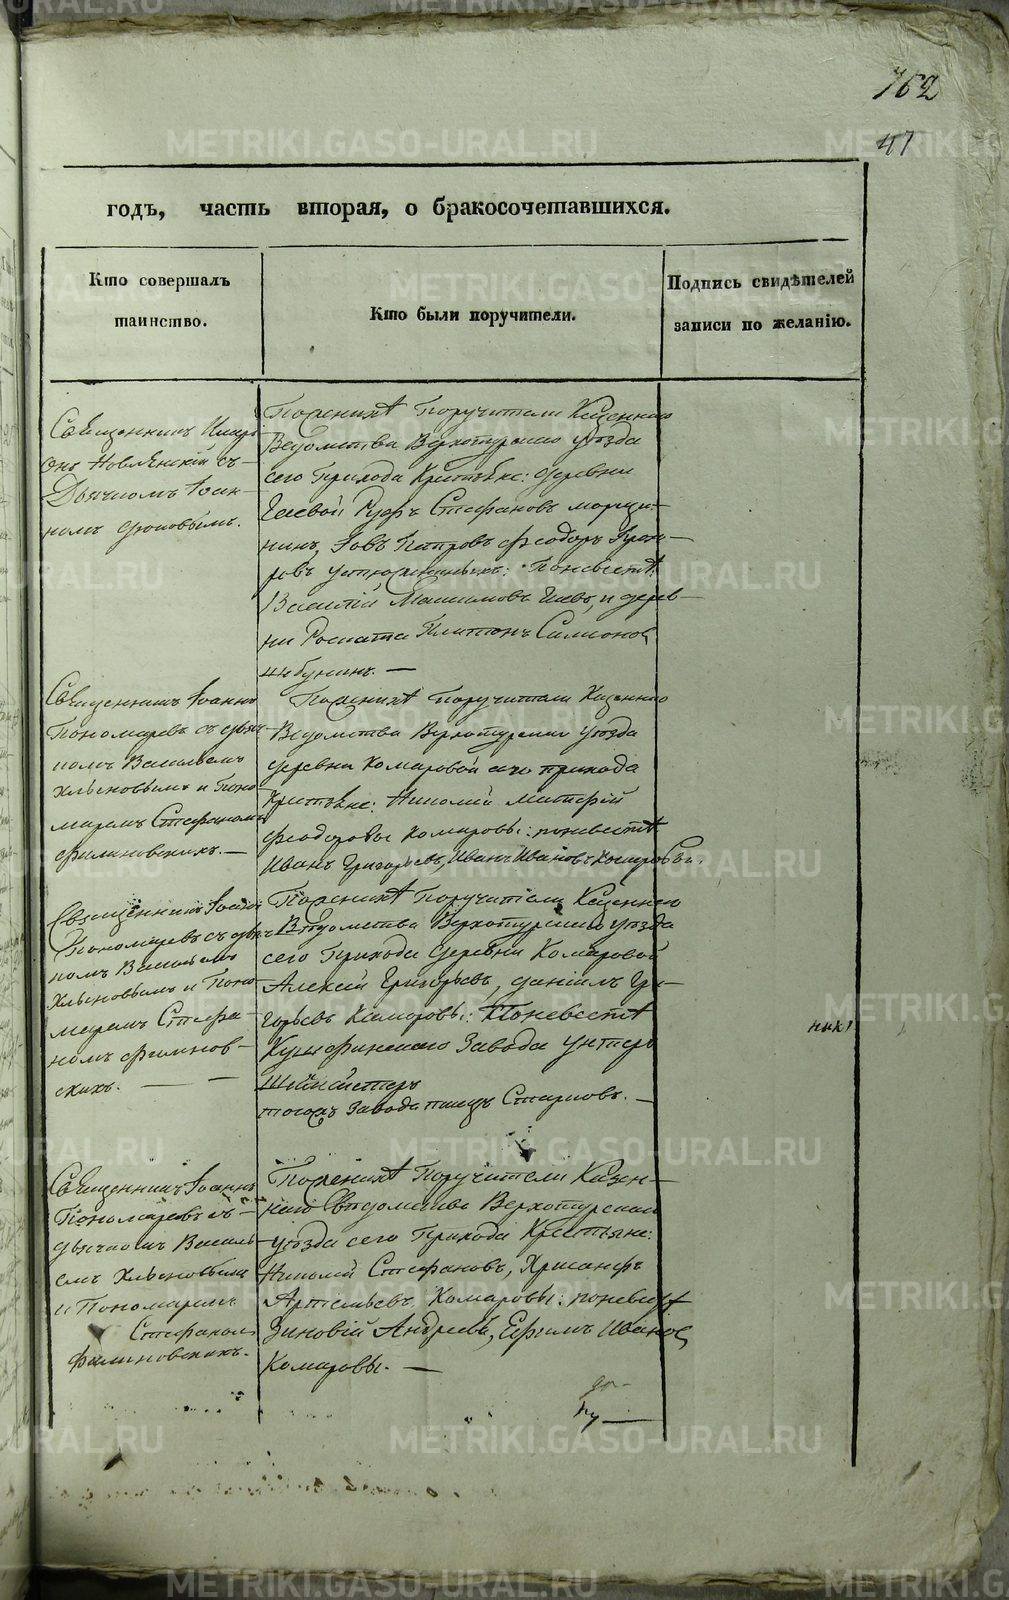 762
47
годъ, часть вторая, о бракосочетавшихся.
Кто совершалъ
таинство.
Кто были поручители.
Подпись свидѣтелей
записи по желанію.
Священникъ Илари
онъ Новлянскій съ
Дьячкомъ Іоан-
номъ
По женихѣ Поручители Казеннаго
Ведомства Верхотурскаго уѣзда
сего Прихода Крестьяне: деревни
Гаевой Руфъ Стефановъ
Іовъ Петровъ Феодоръ
По невестѣ:
Василій Максимовъ Гаевъ, и дерев-
ни Платонъ Симионов
Священникъ Іоаннъ
Пономаревъ съ дьяч-
комъ Васильемъ
Хлыновымъ и Поно
маремъ Стефаномъ
Филиновскихъ. —
По женихѣ Поручители Казеннаго
Ведомства Верхотурскаго уѣзда
деревни Комаровой сего прихода
Крестьяне: Николай Матфій
Феодоровы Комаровы: по невестѣ
Иванъ Григорьевъ, Иванъ Ивановъ Комаровы.
Священникъ Іоаннъ
Пономаревъ съ дьяч
комъ Васильемъ
Хлыновымъ и Поно
маремъ Стефа-
номъ Филинов-
скихъ. — —
По женихѣ Поручители Казеннаго
Вѣдомства Верхотурскаго уѣзда
сего Прихода деревни Комаровой
Алексѣй Григорьевъ, Даніилъ Гри-
горьевъ Комаровы: По невестѣ
Кушвинскаго Завода Унтеръ
Шихмейстеръ
тогожъ Завода писецъ Старковъ. —
Священникъ Іоаннъ
Пономаревъ съ —
дьячкомъ Василь-
емъ Хлыновымъ
и Пономаремъ
Стефаном
Филиновскихъ.
По женихѣ Поручители Казен-
наго Вѣдомства Верхотурскаго
уѣзда сего Прихода Крестьяне:
Николай Стефановъ, Хрисанфъ
Артемьевъ Комаровы: по невестѣ
Зиновій Андреевъ, Ефимъ Иванов
Комаровы. —
METRIKI.GASO-URAL.RU